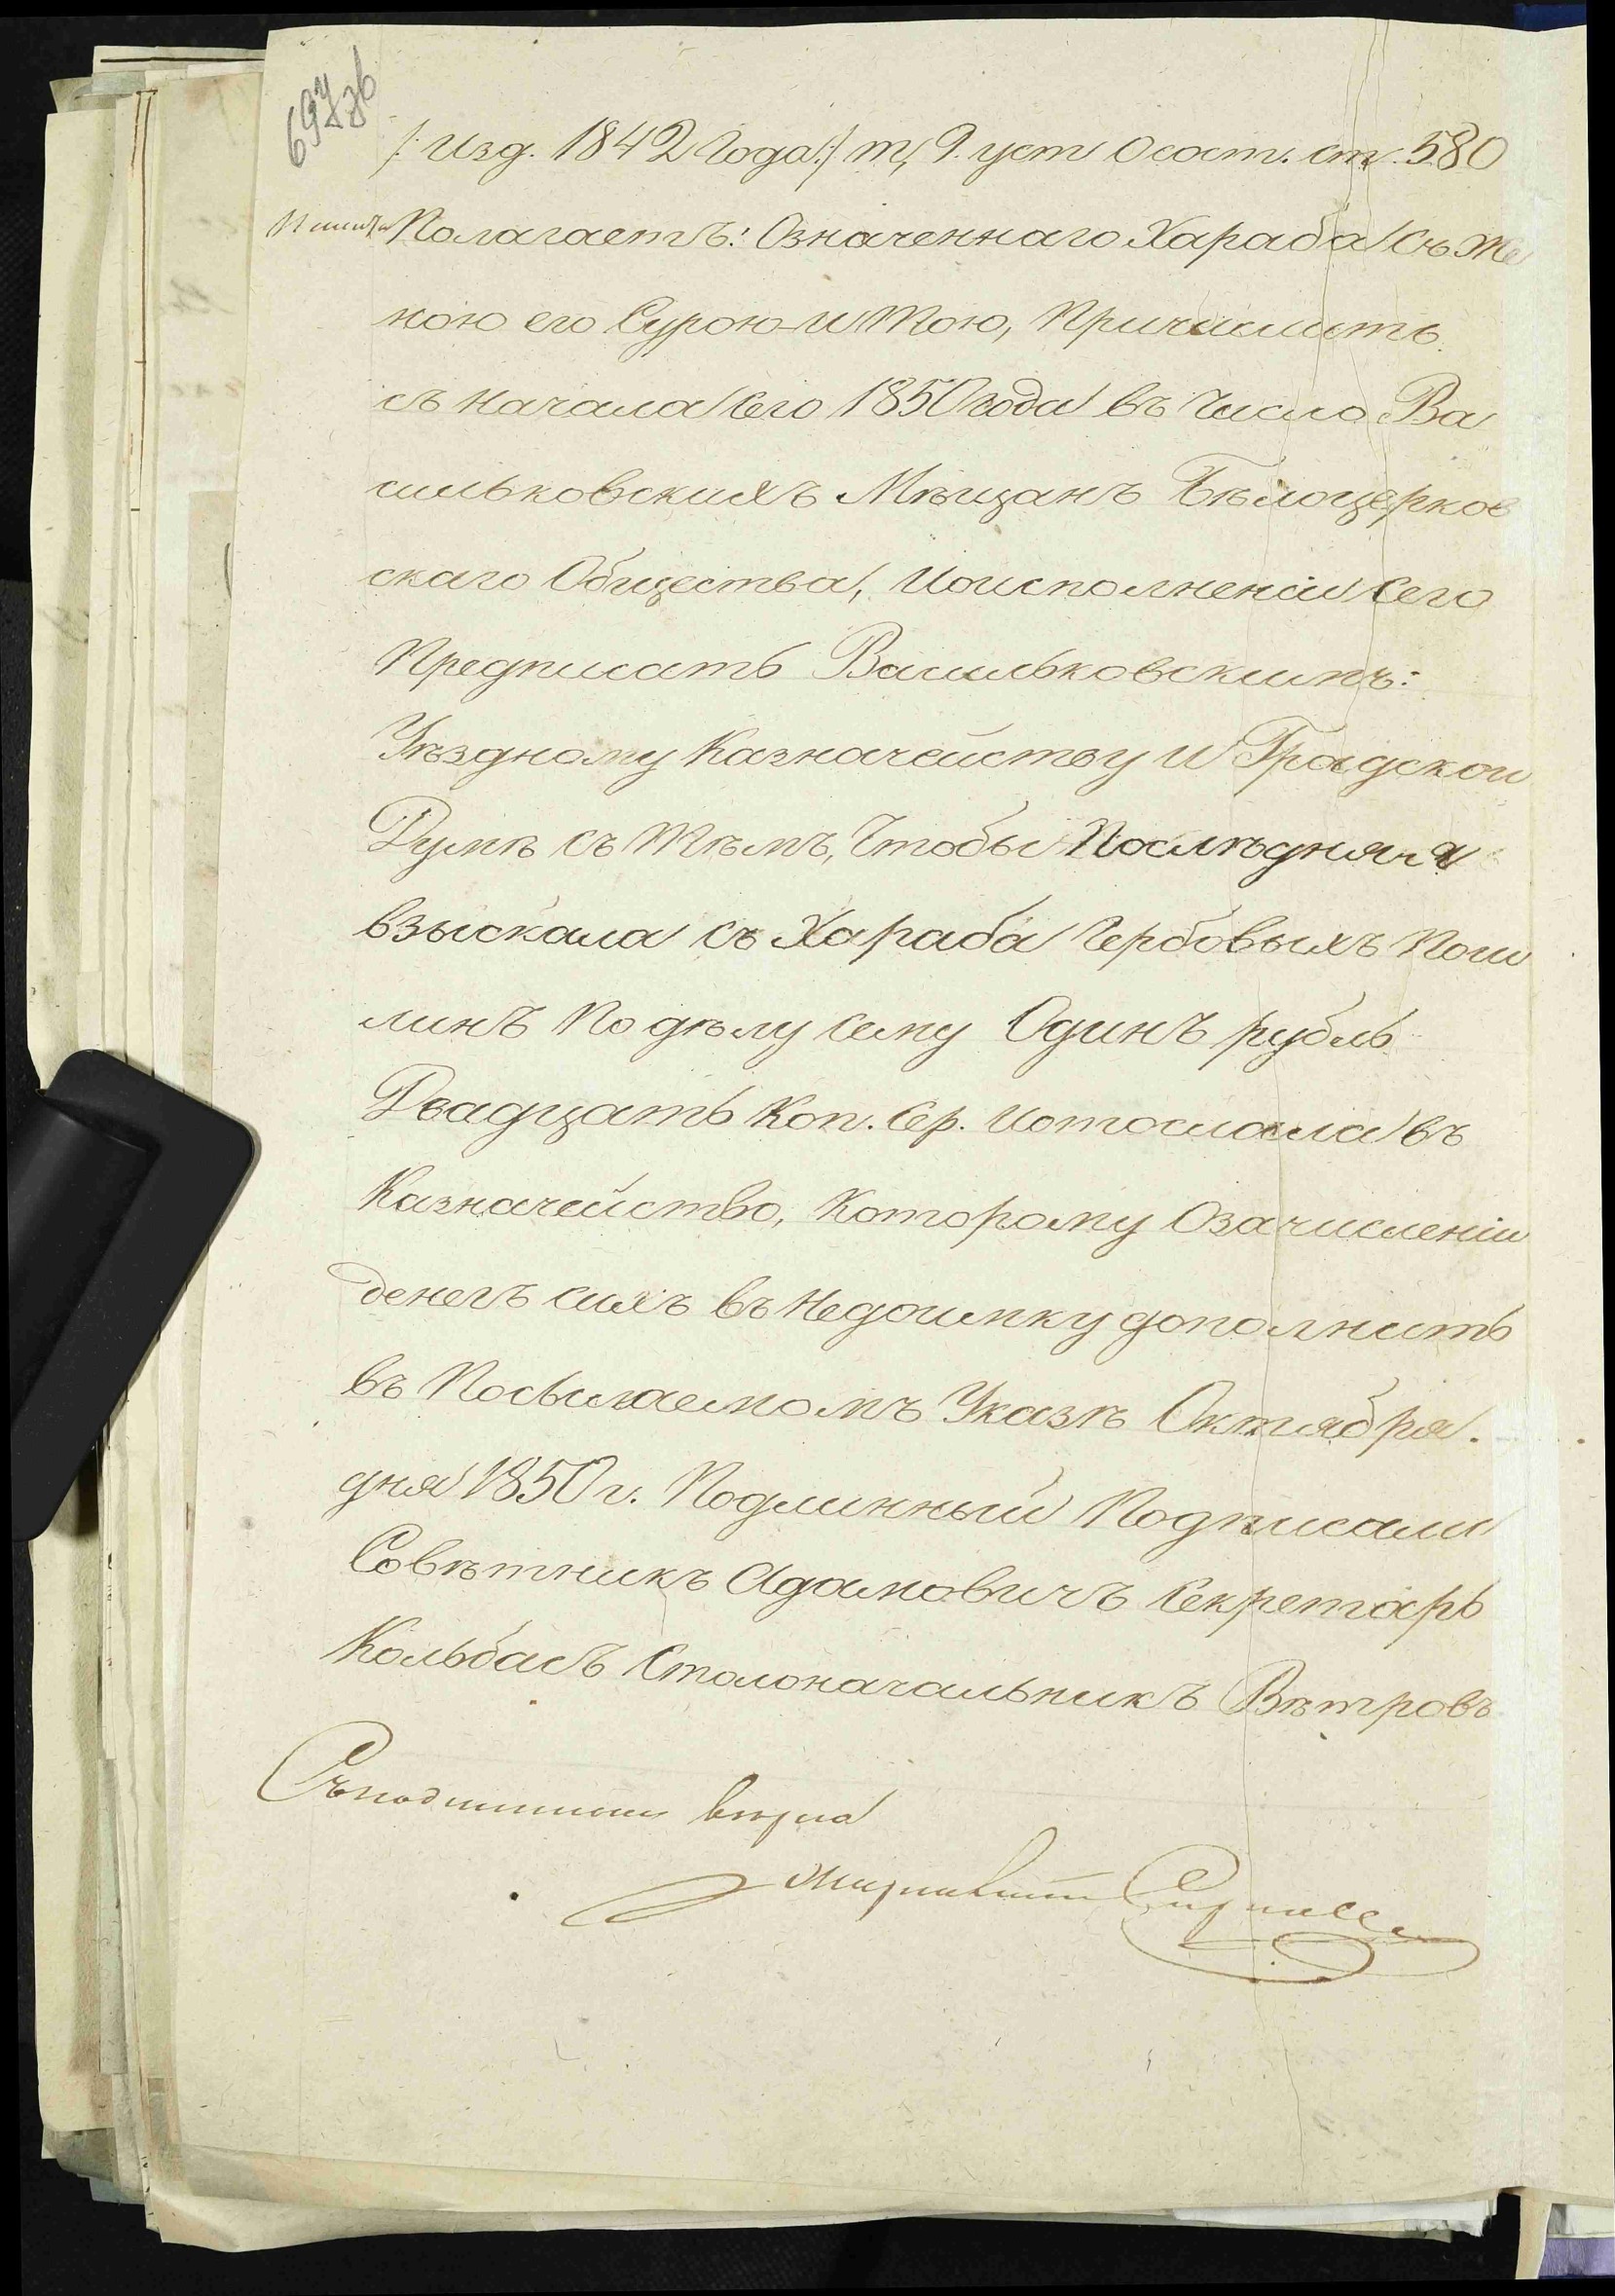 /: Изд. 1842 Года :/ т, 9. уст о сост. ст. 580
Полагаетъ: Означеннаго Хараба съ Же
ною его Сурою-Итою, Причислить
съ начала сего 1850 года въ Число Ва
сильковскихъ Мѣщанъ Бѣлоцерков
скаго Общества, И о исполненіи сего
Предписать Васильковскимъ:
Уѣздному Казначейству и Градской
Думѣ съ тѣмъ, Чтобы Послѣдняя
взыскала съ Хараба Гербовыхъ Пош
линъ По дѣлу сему Одинъ рубль
Двадцать Коп. Сер. И отослала въ
Казначейство, Которому О зачисленіи
денегъ сихъ въ Недоимку дополнить
въ Посылаемомъ Указѣ Октября.
дня 1850 г. Подлинный Подписали
Совѣтникъ Адамовичъ Секретарь
Кольбасъ Столоначальникъ Вѣтровъ
Съ подлиннымъ вѣрно